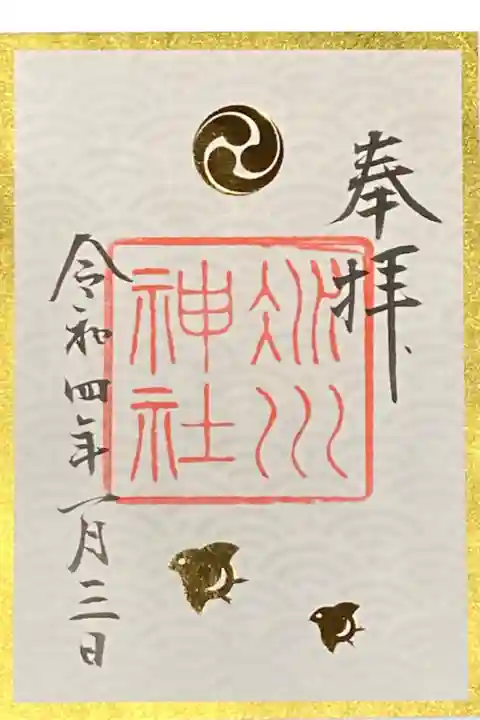 奉拝
氷川
神社
令和四年一月三日